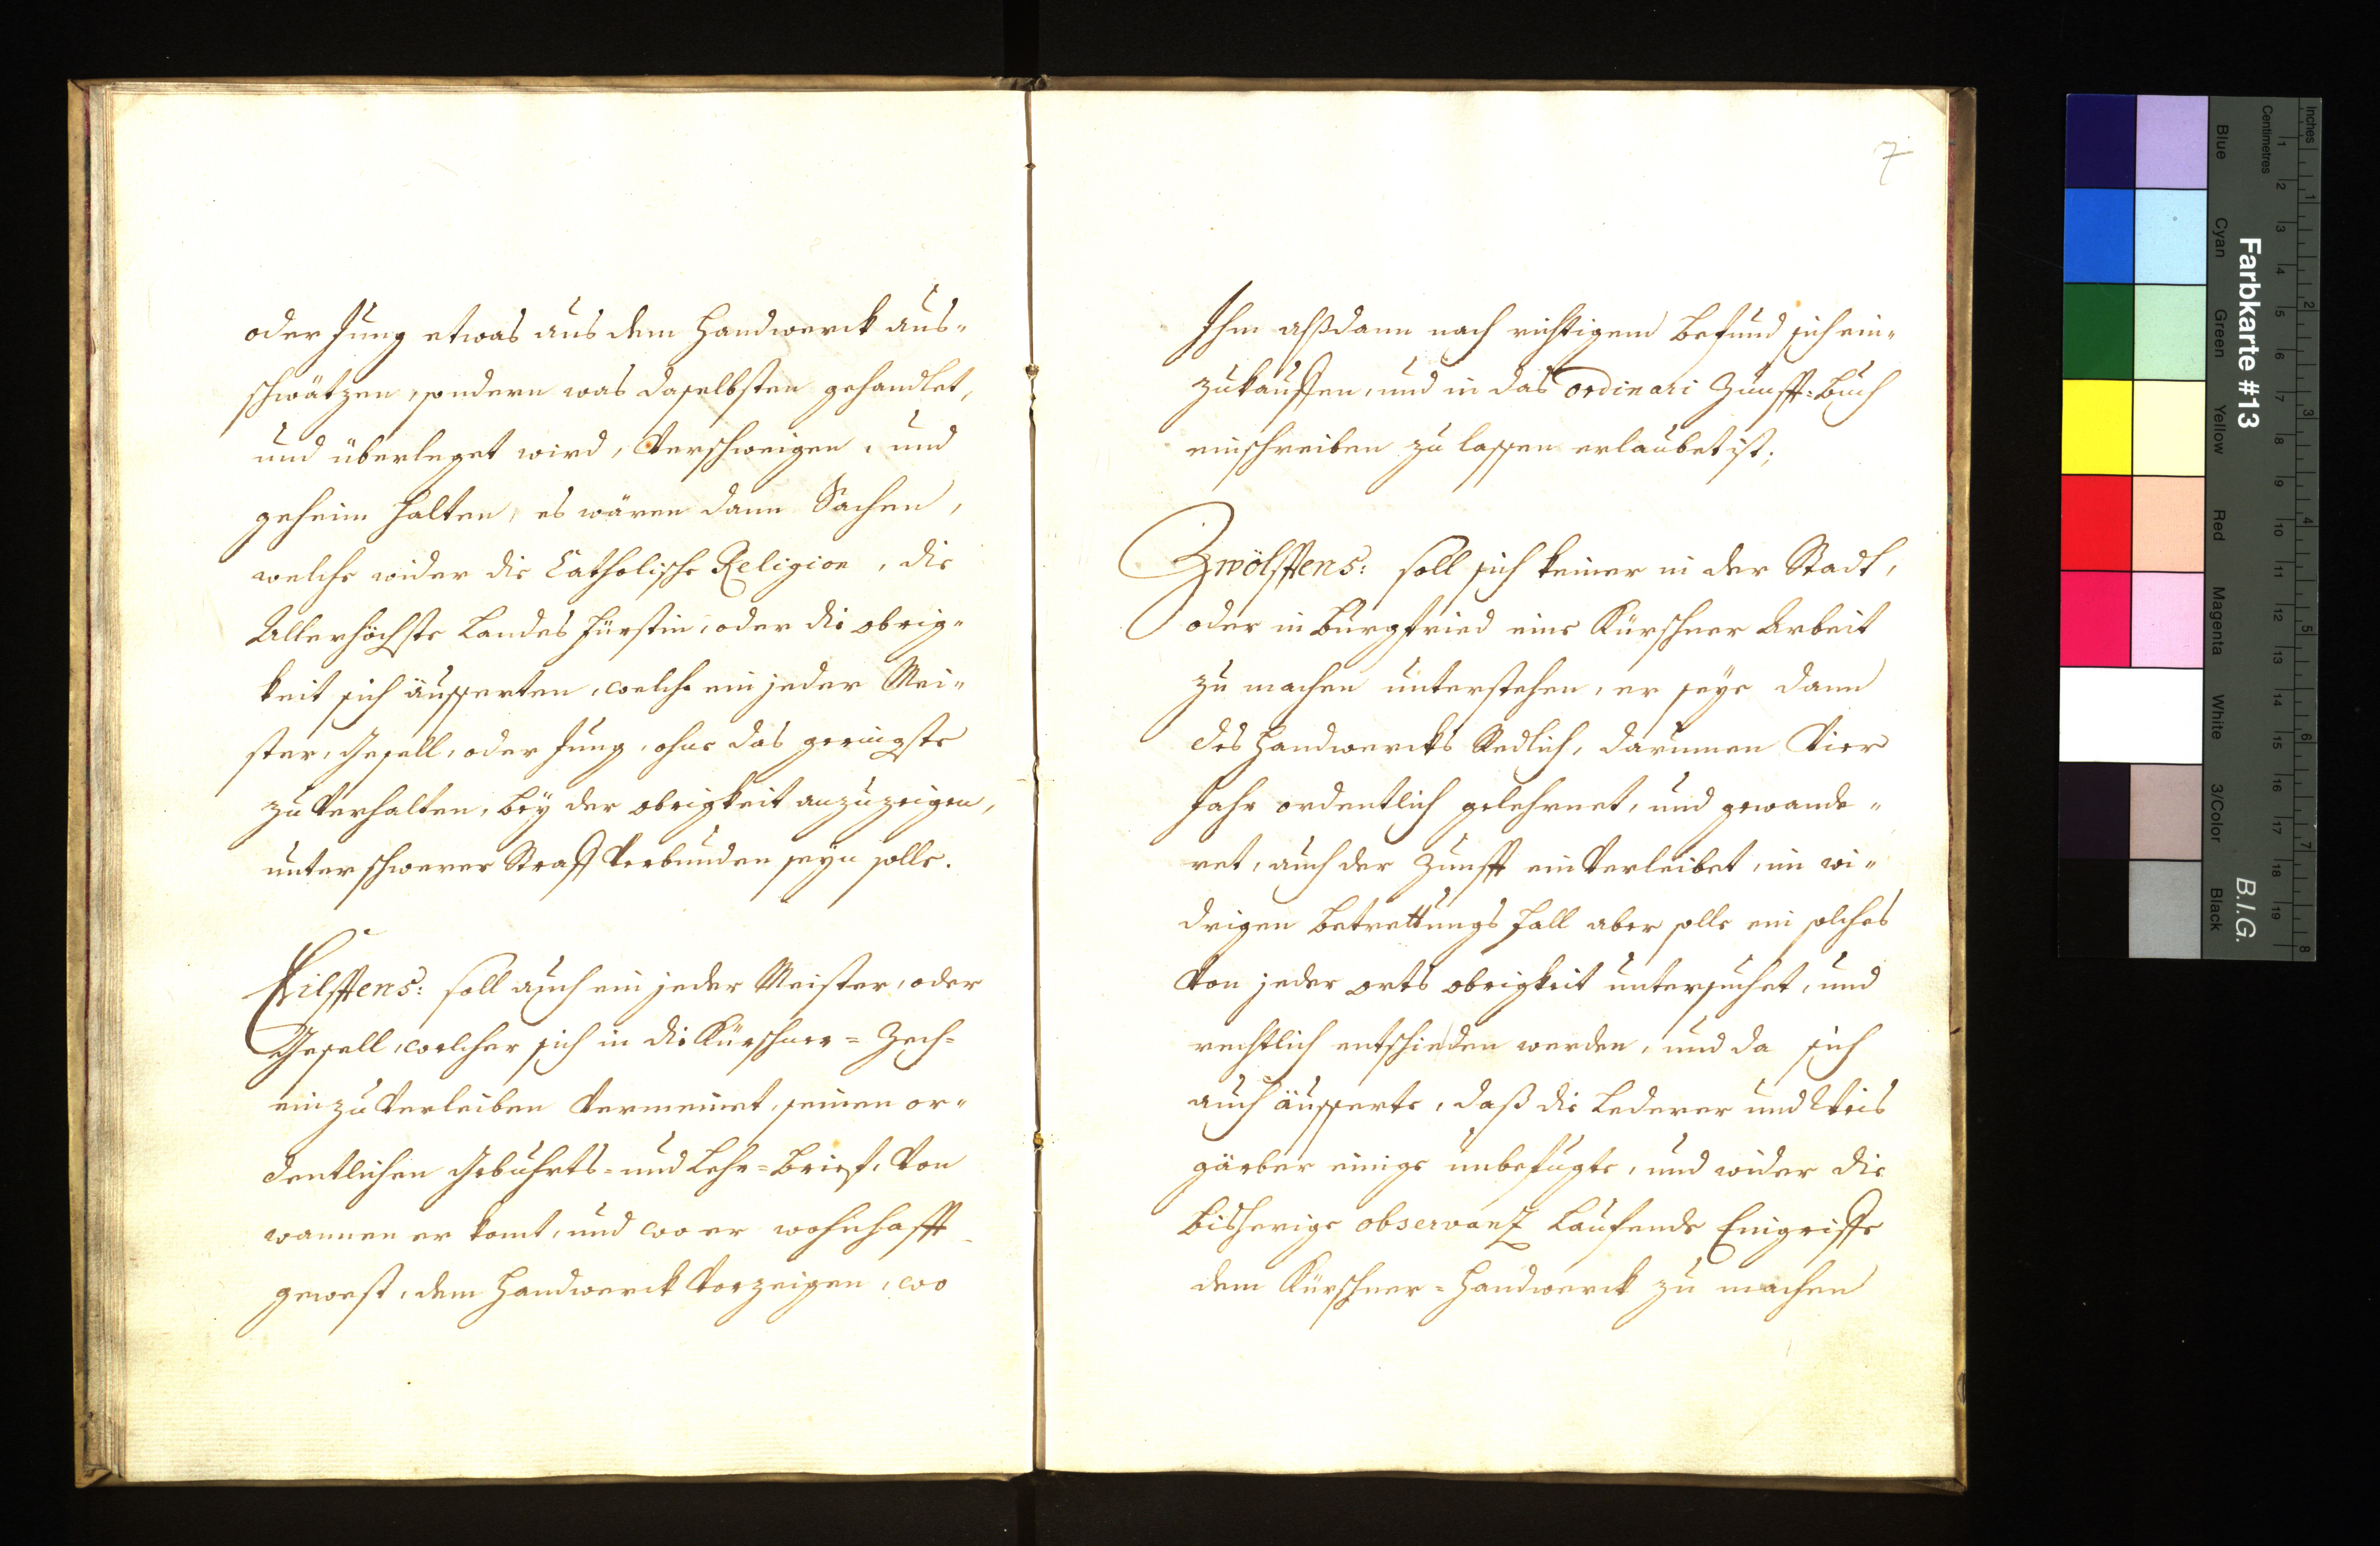 oder Jung etwas aus dem Handwerck aus-
schwätzen, sondern was daselbsten gehandlet,
und überleget wird, verschweigen, und
geheim halten, es wären dann Sachen,
welche wider die Catholische Religion, die
Allerhöchste Landes Fürstin, oder die obrig-
keit sich äusserten, welche ein jeder Mei-
ster, Gesell, oder Jung, ohne das geringste
zu verhalten, bey der obrigkeit anzuzeigen,
unter schwerer Straff verbunden seyn solle.
Eilfftens: soll auch ein jeder Meister, oder
Gesell, welcher sich in die Kürschner=Zech=
einzuverleiben vermeinet, seinen or-
dentlichen Gebuhrts= und Lehr=Brief, von
wannen er komt, und wo er wohnhafft
gewest, dem Handwerck vorzeigen, wo
7
Ihm alßdann nach richtigem Befund sich ein-
zukauffen, und in das ordinari Zunfft=Buch
einschreiben zu lassen erlaubet ist;
Zwölfftens: soll sich keiner in der Stadt,
oder in Burgfried eine Kürschner Arbeit
zu machen unterstehen, er seye dann
des Handwercks Redlich, darumen vier
Jahr ordentlich gelehrnet, und gewande-
ret, auch der Zunfft einverleibet, im wi-
drigen Betrettungs Fall aber solle ein solches
von jeder orts obrigkeit untersuchet, und
rechtlich entschieden werden, und da sich
auch äusserte, daß die Lederer und Weis
gärber einige unbefugte, und wider die
bisherige observanz Laufende Eingriffe
dem Kürschner=Handwerck zu machen
Inches
Centimetres
Farbkarte #13
B.I.G.
Blue
Cyan
Green
Yellow
Red
Magenta
White
3/Color
Black